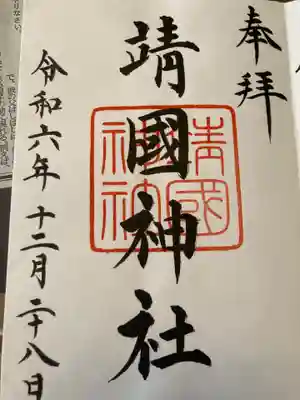 奉拝
靖國神社
令和六年十二月二十八日
靖國
神社